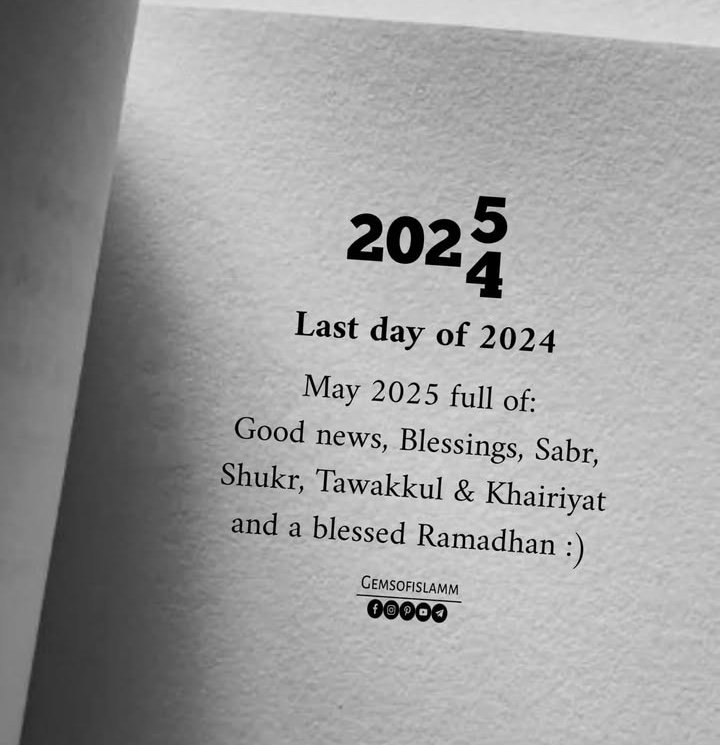 2025
4
Last day of 2024
May 2025 full of:
Good news, Blessings, Sabr,
Shukr, Tawakkul & Khairiyat
and a blessed Ramadhan :)
GEMSOFISLAMM